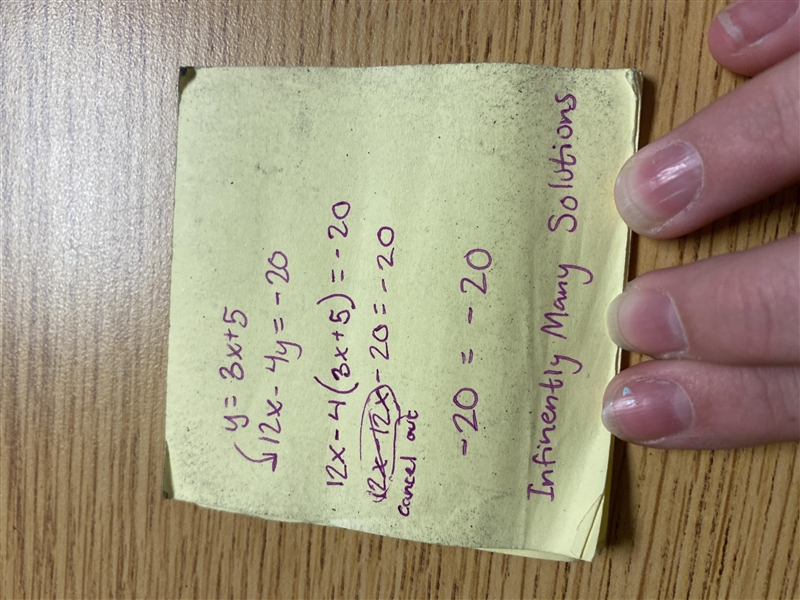 y = 3x+5
12x - 4y = -20
12x - 4(3x+5) = -20
12x - 12x - 20 = -20
cancel out
-20 = -20
Infinently Many Solutions